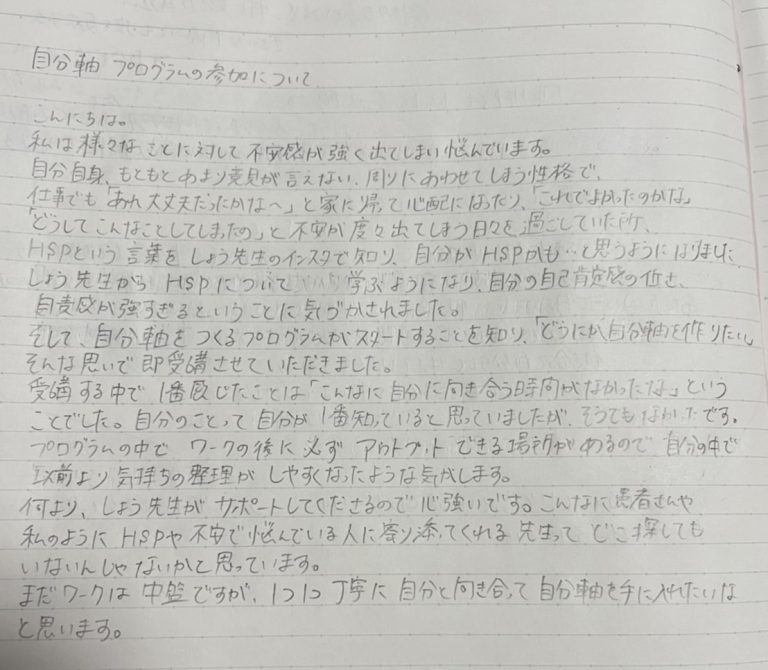 自分軸 プログラムの参加について
こんにちは。
私は様々なことに対して不安感が強く出てしまい悩んでいます。
自分自身、もともとあまり意見が言えない、周りにあわせてしまう性格で、
仕事でも「あれ大丈夫だったかな〜」と家に帰って心配になったり、「これでよかったのかな」
「どうしてこんなことしてしまったの」と不安が度々出てしまう日々を過ごしていた所、
HSPという言葉をしょう先生のインスタで知り、自分がHSPかも…と思うようになりました。
しょう先生から HSPについて 学ぶようになり、自分の自己肯定感の低さ、
自責感が強すぎるということに気づかされました。
そして、自分軸をつくるプログラムがスタートすることを知り、「どうにか自分軸を作りたい」
そんな思いで即受講させていただきました。
受講する中で1番感じたことは「こんなに自分に向き合う時間がなかったな」という
ことでした。自分のことって自分が1番知っていると思っていましたが、そうでもなかったです。
プログラムの中で ワークの後に必ず アウトプットできる場所があるので 自分の中で
以前より気持ちの整理が しやすくなったような気がします。
何より、しょう先生が サポートしてくださるので心強いです。こんなに患者さんや
私のように HSPや 不安で悩んでいる人に寄り添ってくれる 先生って どこ探しても
いないんじゃないかと思っています。
まだワークは 中盤ですが、1つ1つ丁寧に 自分と向き合って 自分軸を手に入れたいな
と思います。